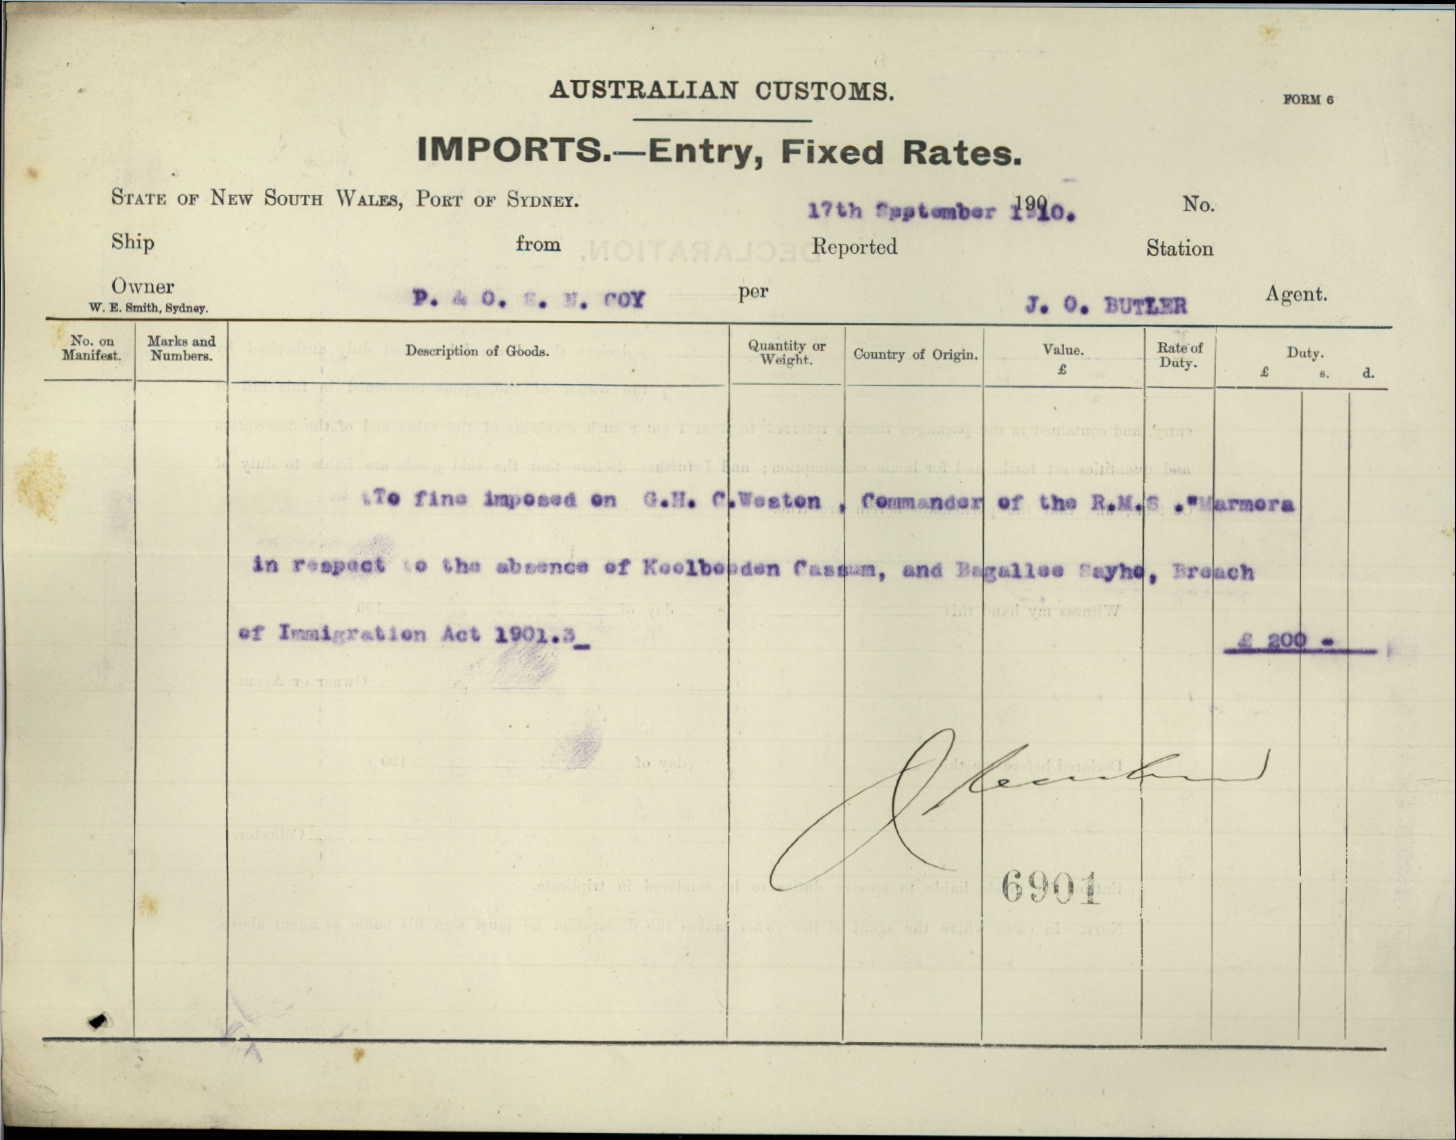 AUSTRALIAN CUSTOMS.
FORM 6
IMPORTS.—Entry, Fixed Rates.
STATE OF NEW SOUTH WALES, PORT OF SYDNEY. 17th September 1910. 190 No.
Ship from Reported Station
Owner P. & O. S. N. COY per J. O. BUTLER Agent.
W. E. Smith, Sydney.
No. on Manifest. Marks and Numbers. Description of Goods. Quantity or Weight. Country of Origin. Value. £ Rate of Duty. Duty. £ s. d.
To fine imposed on G.H. C.Weston , Commander of the R.M.S ."Marmora
in respect to the absence of Koolbooden Cassum, and Bagallee Sayho, Breach
of Immigration Act 1901.3_ £ 200 -
6901